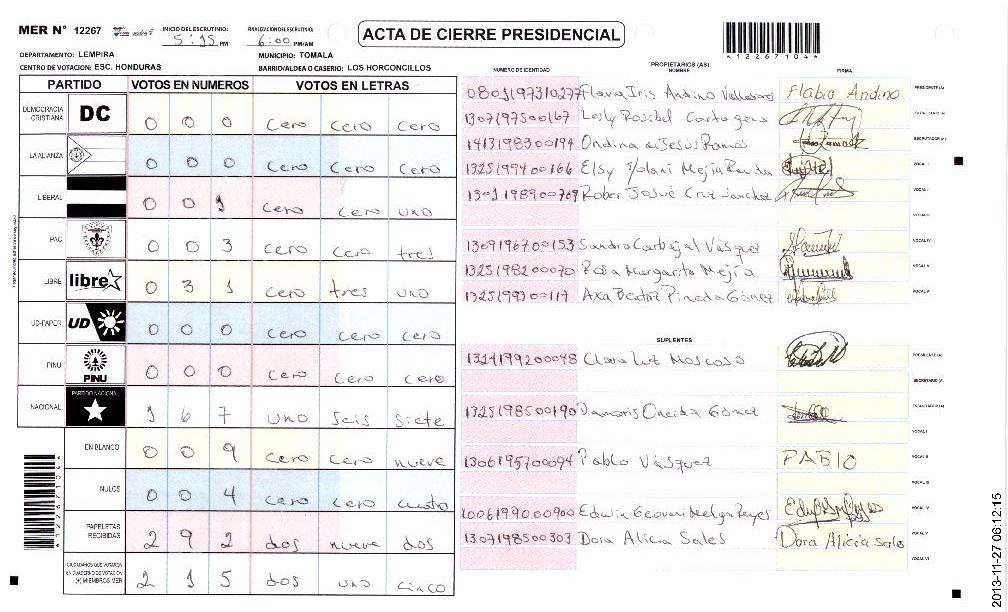 MER N° 12267 INICIO DEL ESCRUTINIO: 5:15 PM FINALIZACION DEL ESCRUTINIO: 6:00 PM/AM
ACTA DE CIERRE PRESIDENCIAL
*12267104*
DEPARTAMENTO: LEMPIRA MUNICIPIO: TOMALA
CENTRO DE VOTACION: ESC. HONDURAS BARRIO/ALDEA O CASERIO: LOS HORCONCILLOS
PARTIDO VOTOS EN NUMEROS VOTOS EN LETRAS
DEMOCRACIA CRISTIANA DC 0 0 0 cero cero cero
LA ALIANZA 0 0 0 cero cero cero
LIBERAL 0 0 1 cero cero uno
PAC 0 0 3 cero cero tres
LIBRE libre 0 3 1 cero tres uno
UD-FAPER UD 0 0 0 cero cero cero
PINU PINU 0 0 0 cero cero cero
NACIONAL PARTIDO NACIONAL 1 6 7 uno seis siete
EN BLANCO 0 0 9 cero cero nueve
NULOS 0 0 4 cero cero cuatro
PAPELETAS RECIBIDAS 2 9 2 dos nueve dos
CIUDADANOS QUE VOTARON EN CUADERNO DE VOTACION (+) MIEMBROS MER 2 1 5 dos uno cinco
PROPIETARIOS (AS)
NUMERO DE IDENTIDAD NOMBRE FIRMA
0801197310277 Flavia Iris Andino Flabia Andino PRESIDENTE (A)
1307197500167 Lesly Rosibel Cartagena SECRETARIO (A)
1413198300194 Ondina de Jesús Ramos ESCRUTADOR (A)
1325199400166 Elsy Yolani Mejía VOCAL I
1301198900769 Rober Josué Cruz Sanchez VOCAL II
VOCAL III
1309196700153 Sandra Carbajal Vásquez VOCAL IV
1325198200070 Rosa Margarita Mejía VOCAL V
1325199300117 Axa Beatriz Pineda Gómez VOCAL VI
SUPLENTES
1324199200048 Clara Luz Moscoso PRESIDENTE (A)
SECRETARIO (A)
1325198500190 Damaris Oneida Gómez ESCRUTADOR (A)
VOCAL I
1306195700094 Pablo Vásquez PABIO VOCAL II
VOCAL III
1006199000900 Edwin Geovani Melgar Reyes VOCAL IV
1307198500303 Dora Alicia Sales Dora Alicia Sales VOCAL V
VOCAL VI
2013-11-27 06:12:15